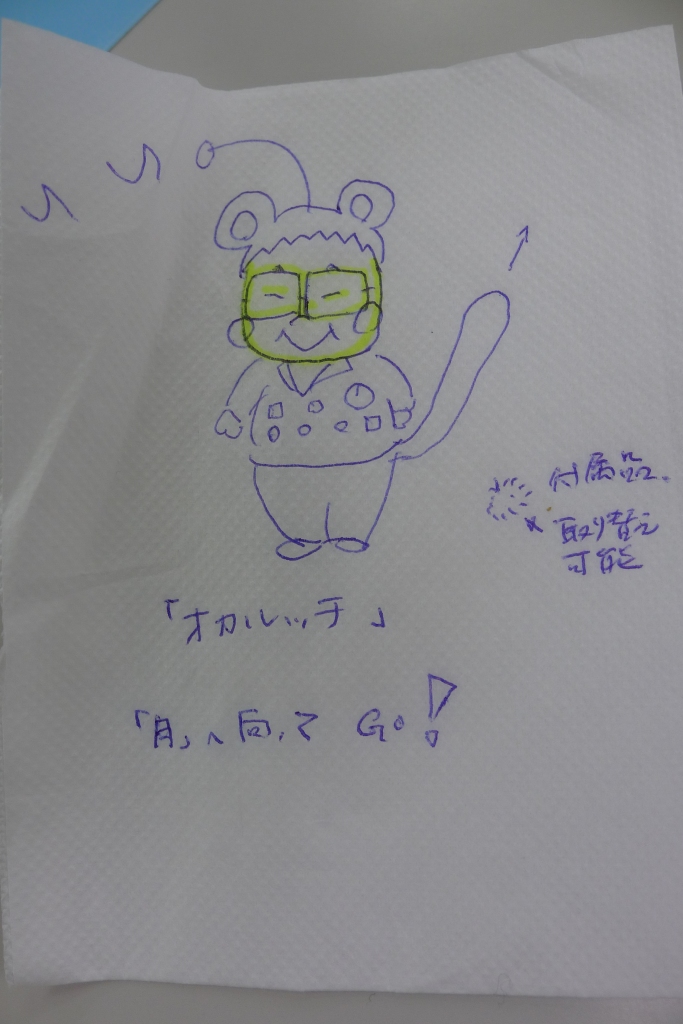 付属品.
取り替え
可能
「オカルッチ」
「月」へ向って Go!